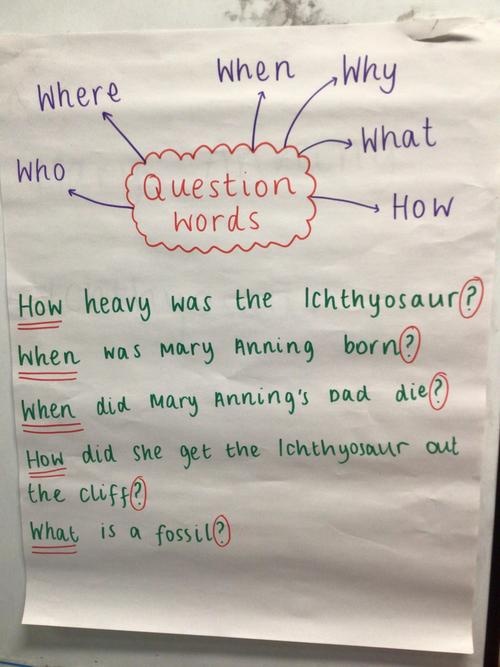 Where
When
Why
What
Who
How
Question
words
How heavy was the Ichthyosaur?
When was Mary Anning born?
When did Mary Anning's Dad die?
How did she get the Ichthyosaur out
the cliff?
What is a fossil?